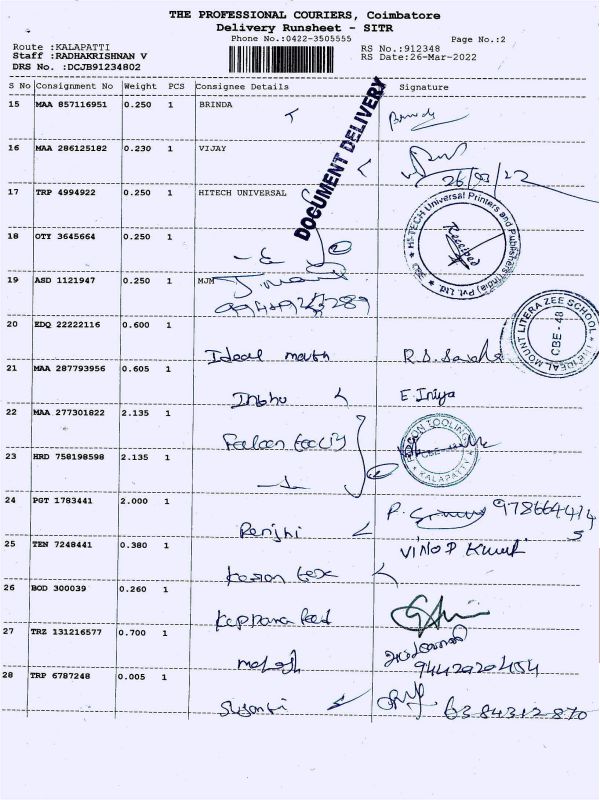 THE PROFESSIONAL COURIERS, Coimbatore
Delivery Runsheet - SITR
Phone No.:0422-3505555
Page No.:2
Route :KALAPATTI
Staff :RADHAKRISHNAN V
DRS No. :DCJB91234802
RS No.:912348
RS Date:26-Mar-2022
S No Consignment No Weight PCS Consignee Details Signature
15 MAA 857116951 0.250 1 BRINDA
DOCUMENT DELIVERY
16 MAA 286125182 0.230 1 VIJAY
26/03/22
17 TRP 4994922 0.250 1 HITECH UNIVERSAL
HI-TECH Universal Printers and Publishers (India) Pvt. Ltd.
Received
18 OTY 3645664 0.250 1
19 ASD 1121947 0.250 1 MJM
THE IDEAL MOUNT LITERA ZEE SCHOOL
CBE - 48
20 EDQ 22222116 0.600 1
Ideal
21 MAA 287793956 0.605 1
E. Iniya
22 MAA 277301822 2.135 1
TOOLING
KALAPATTI
23 HRD 758198598 2.135 1
24 PGT 1783441 2.000 1
Renjhi
25 TEN 7248441 0.380 1
VINOD Kumar
26 BOD 300039 0.260 1
27 TRZ 131216577 0.700 1
mahesh
9442920454
28 TRP 6787248 0.005 1
6384312870